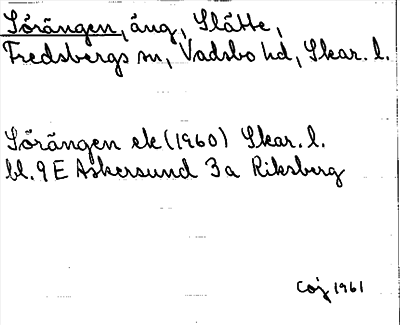 Sörängen, äng, Slätte,
Fredsbergs sn, Vadsbo hd, Skar. l.
Sörängen ek (1960) Skar. l.
bl. 9 E Askersund 3 a Riksberg
1961